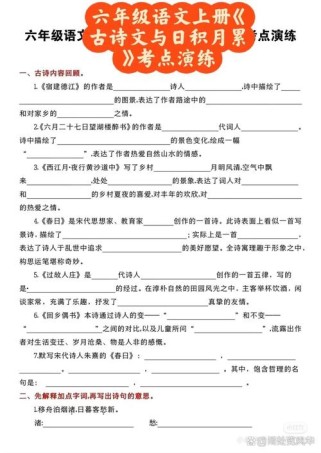 六年级语文上册《
古诗文与日积月累
》考点演练
六年级语文 考点演练
一、古诗内容回顾。
1.《宿建德江》的作者是____诗人____,诗中描绘了____
____的图景,表达了作者旅途中的____
和对家乡的____之情。
2.《六月二十七日望湖楼醉书》的作者是____代词人____。
诗中描绘了____的景色变化,绘成一幅
“____”,表达了作者热爱自然山水的情感。
3.《西江月·夜行黄沙道中》写了乡村____月明风清,空气中飘
来____,处处____的景象,表达了词人对____
和____的乡村夏夜的喜爱,对丰年的欢欣,对____
的热爱之情。
4.《春日》是宋代思想家、教育家____创作的一首诗。此诗表面上看似一首写
景诗,描绘了____; 实际上是一首____,
表达了诗人于乱世中追求____的美好愿望。全诗寓理趣于形象之中,
构思运笔堪称奇妙。
5.《过故人庄》是____代诗人____创作的一首五律,写的
是____。在淳朴自然的田园风光之中,主客举杯饮酒,闲
谈家常,充满了乐趣,抒发了____真挚的友情。
6.《回乡偶书》本诗通过诗人的不变——“____”和变——“____
____”之间的对比,以及儿童所问“____”,流露出作
者对生活变迁、岁月沧桑、物是人非的感慨。
7.默写宋代诗人朱熹的《春日》:____,____
____。____,____。其中,饱含哲理的名
句是: ____,____。
二、先解释加点字词,再写出诗句的意思。
1.移舟泊烟渚,日暮客愁新。
渚: 愁: